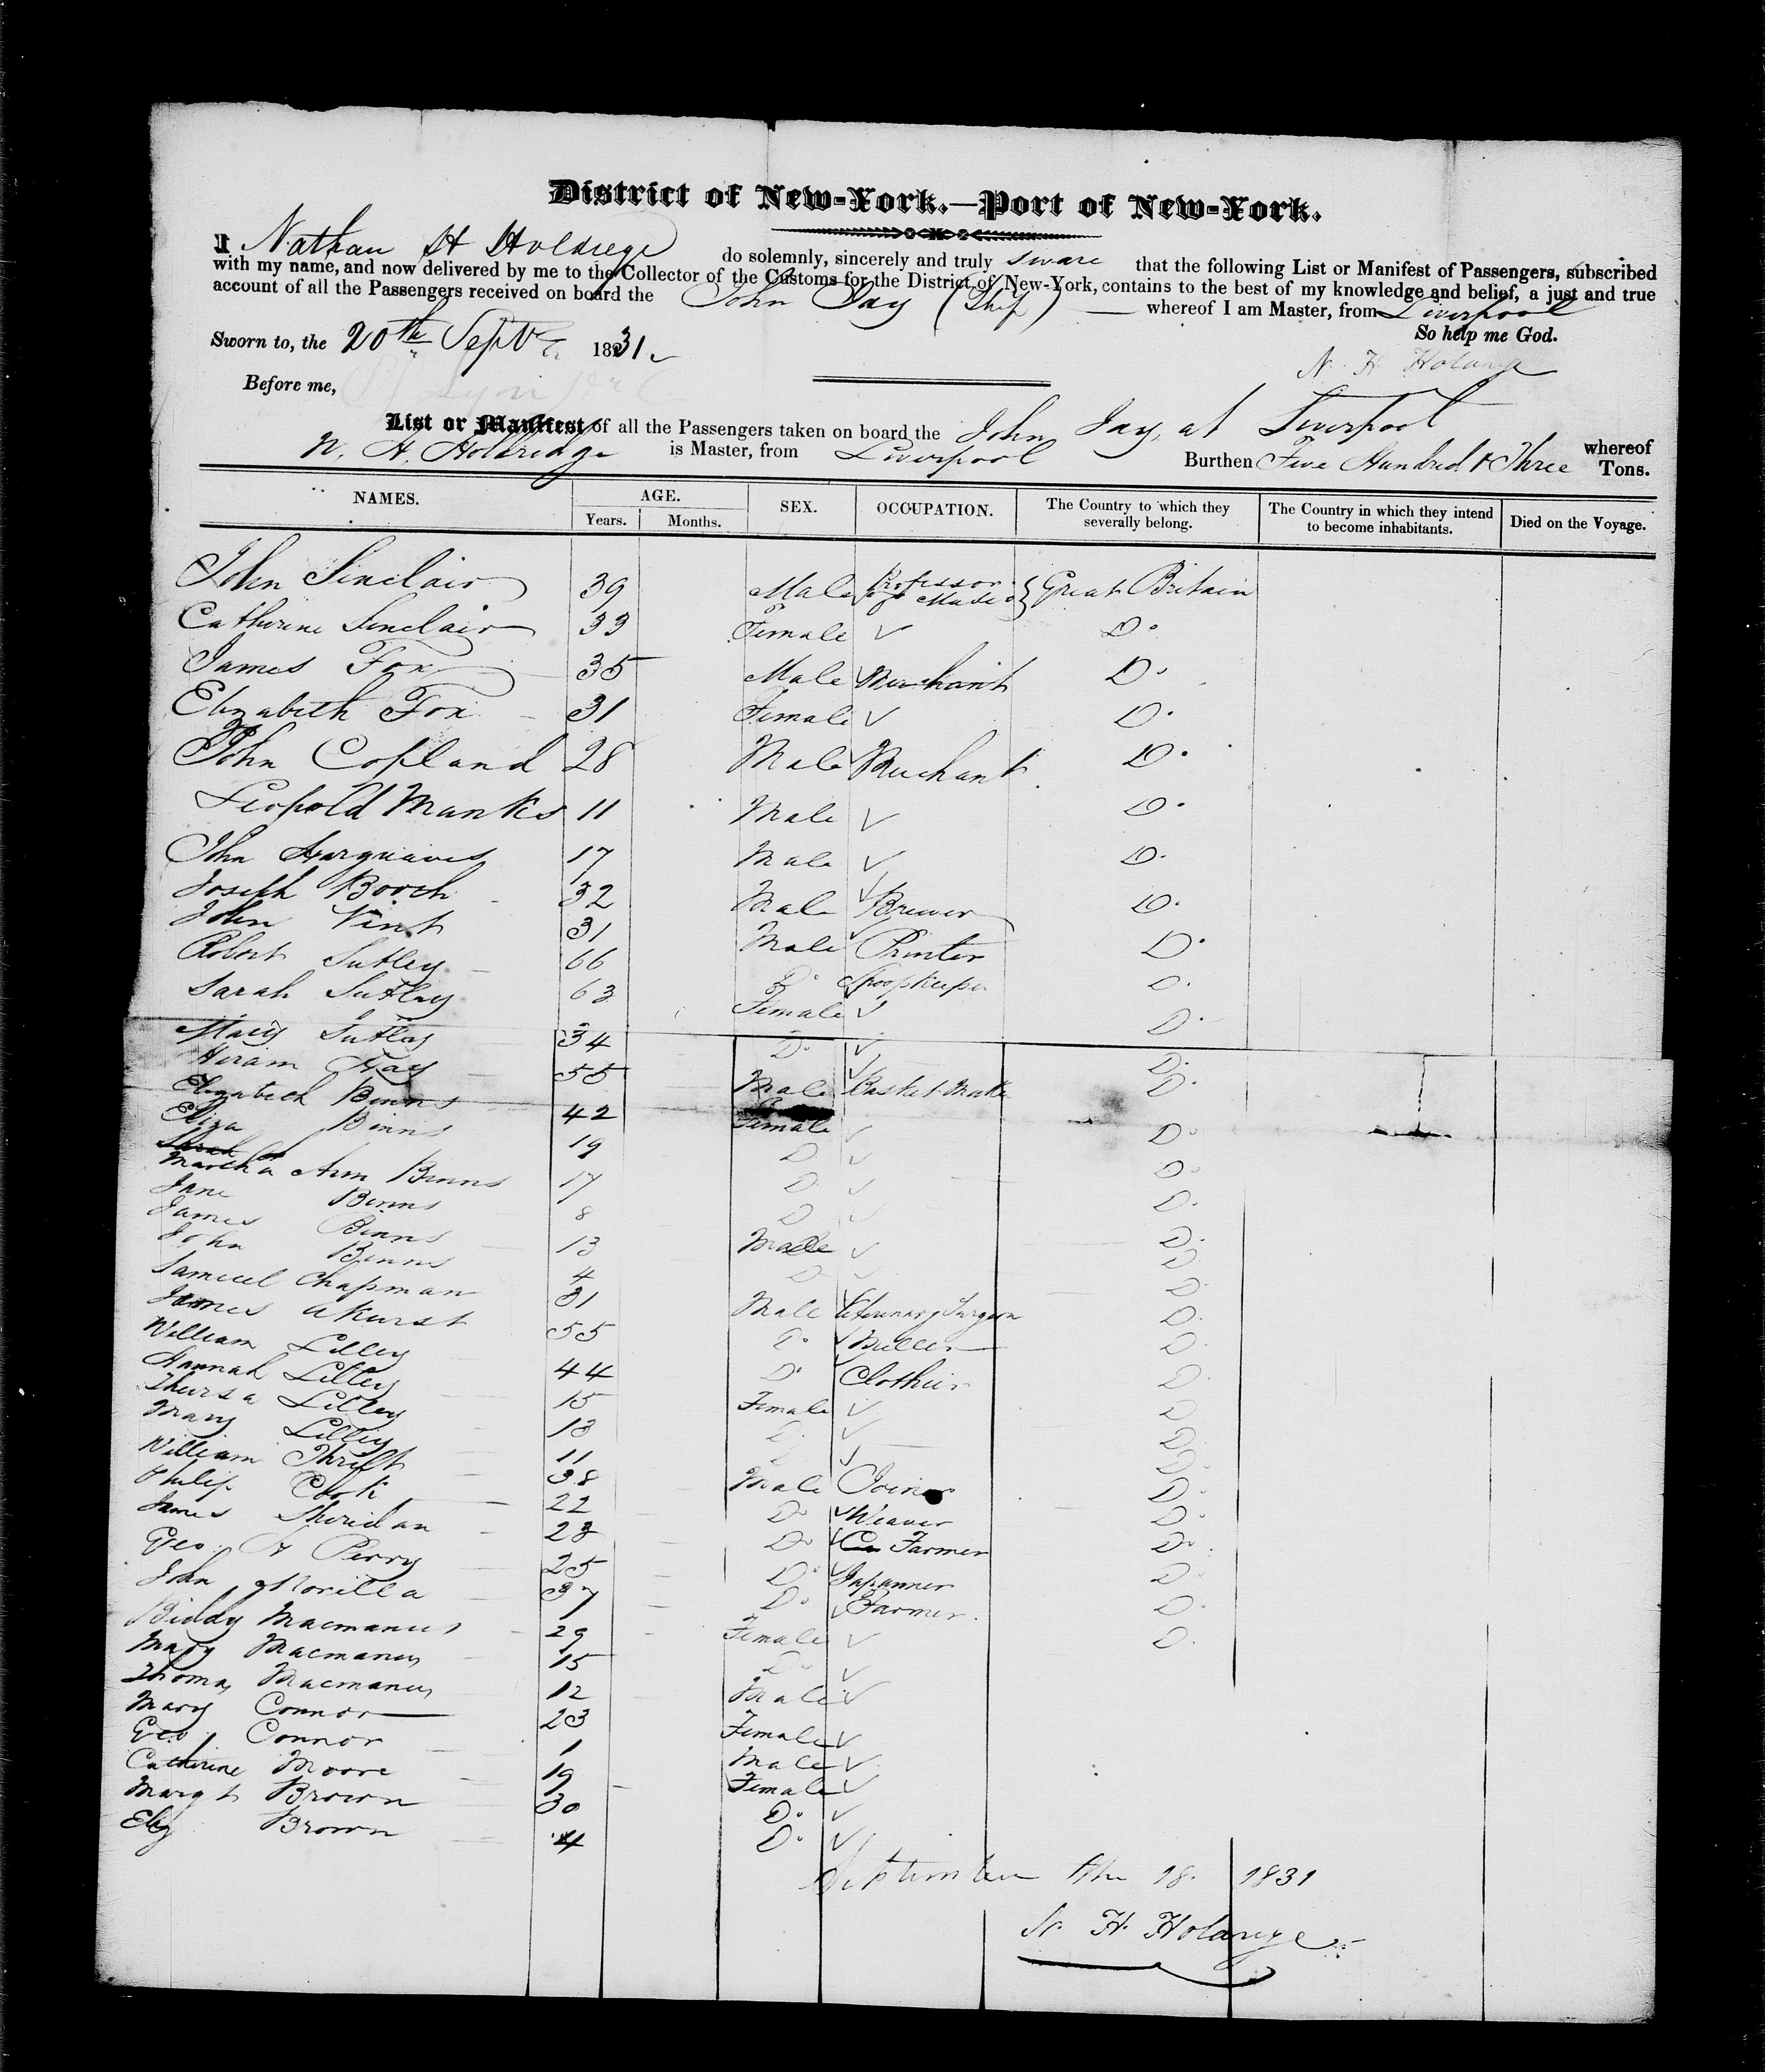 District of New-York.—Port of New-York.
I Nathan H Holdrege do solemnly, sincerely and truly sware that the following List or Manifest of Passengers, subscribed
with my name, and now delivered by me to the Collector of the Customs for the District of New-York, contains to the best of my knowledge and belief, a just and true
account of all the Passengers received on board the John Jay (Ship) whereof I am Master, from Liverpool
So help me God.
Sworn to, the 20th Sept 1831
N. H. Holdrege
Before me,
List or Manifest of all the Passengers taken on board the John Jay, at Liverpool whereof
N. H. Holdridge is Master, from Liverpool Burthen Five Hundred & Three Tons.
NAMES. AGE. Years. Months. SEX. OCCUPATION. The Country to which they severally belong. The Country in which they intend to become inhabitants. Died on the Voyage.
John Sinclair 39 Male Professor of Music Great Britain
Catherine Sinclair 33 Female ✓ Do
James Fox 35 Male Merchant Do
Elizabeth Fox 31 Female ✓ Do
John Copland 28 Male Merchant Do
Leopold Manks 11 Male ✓ Do
John Hargreaves 17 Male ✓ Do
Joseph Booth 32 Male Brewer Do
John Vint 31 Male Printer Do
Robert Sutley 66 Do Shoopkeeper Do
Sarah Sutley 63 Female ✓ Do
Mary Sutley 34 Do ✓ Do
Hiram Fay 55 Male Basket Maker Do
Elizabeth Binns 42 Female ✓ Do
Eliza Binns 19 D ✓ Do
Martha Ann Binns 17 D ✓ Do
Jane Binns 8 D ✓ Do
James Binns 13 Male ✓ Do
John Binns 4 D ✓ Do
Samuel Chapman 31 Male Veterinary Surgeon Do
James Akurst 55 Do Miller Do
William Lilley 44 Do Clothier Do
Hannah Lilley 15 Female ✓ Do
Thursa Lilley 13 D ✓ Do
Mary Lilley 11 ✓ Do
William Thrift 38 Male Joiner Do
Philip Cook 22 Do Weaver Do
James Sheridan 23 Do Farmer Do
Geo. Perry 25 Do Japanner Do
John Morilla 37 Do Farmer Do
Biddy Macmanus 29 Female ✓ Do
Mary Macmanus 15 Do ✓
Thomas Macmanus 12 Male ✓
Mary Connor 23 Female ✓
Geo. Connor 1 Male ✓
Catherine Moore 19 Female ✓
Margt Brown 30 Do ✓
Eliz Brown 4 Do ✓
September the 18. 1831
N. H. Holdrege